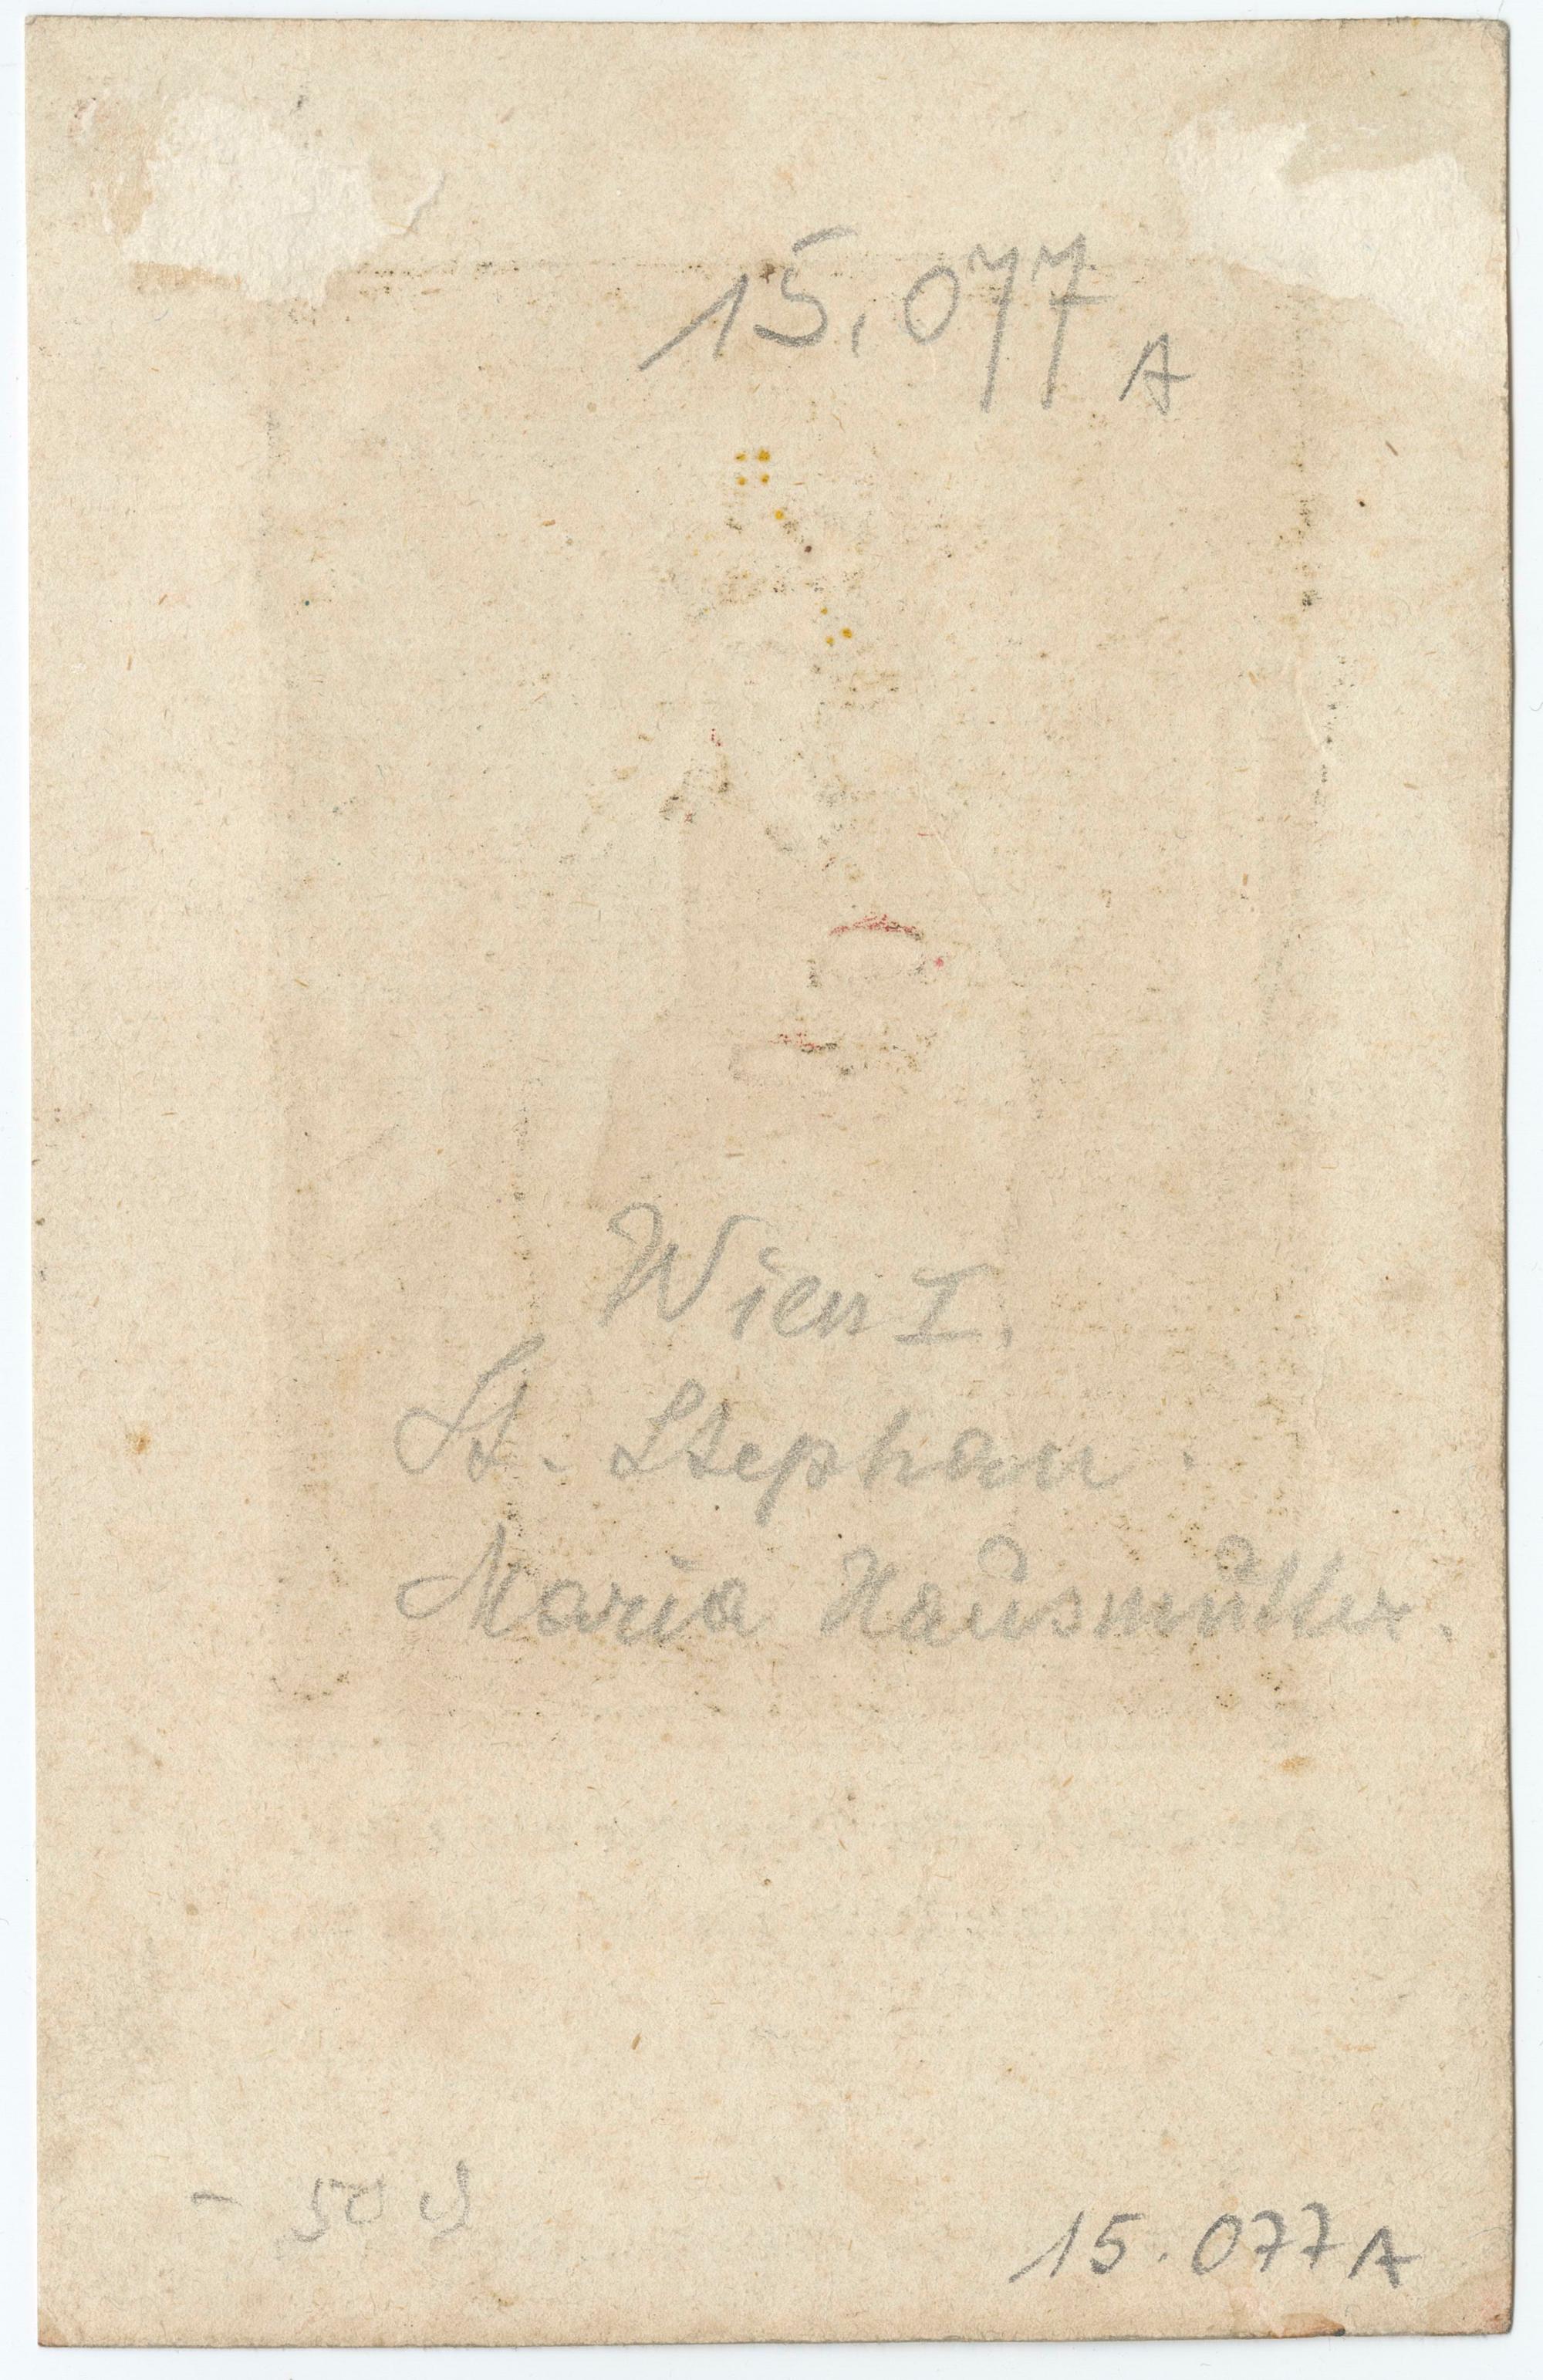 15.077 A
Wien I.
St. Stephan.
Maria Hausmutter.
- 50
15.077 A